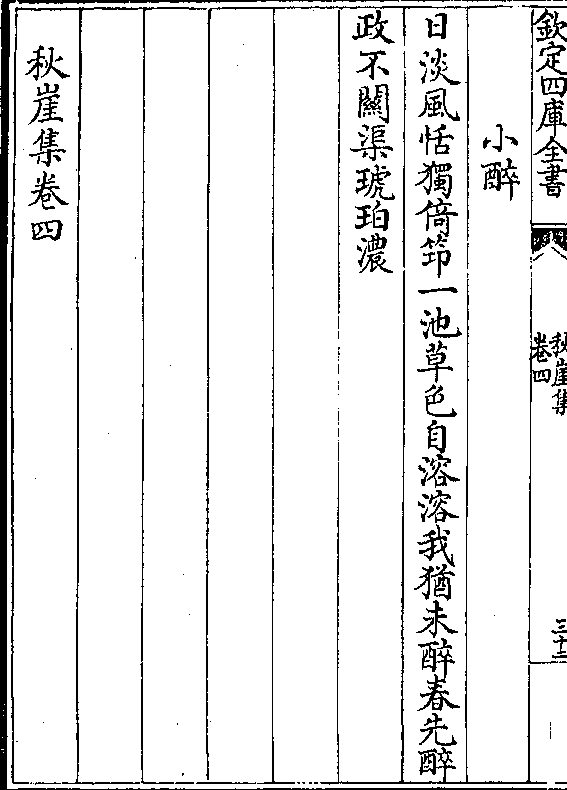 欽定四庫全書
秋崖集
卷四
三十二
小醉
日淡風恬獨倚笻一池草色自溶溶我猶未醉春先醉
政不關渠琥珀濃
秋崖集卷四